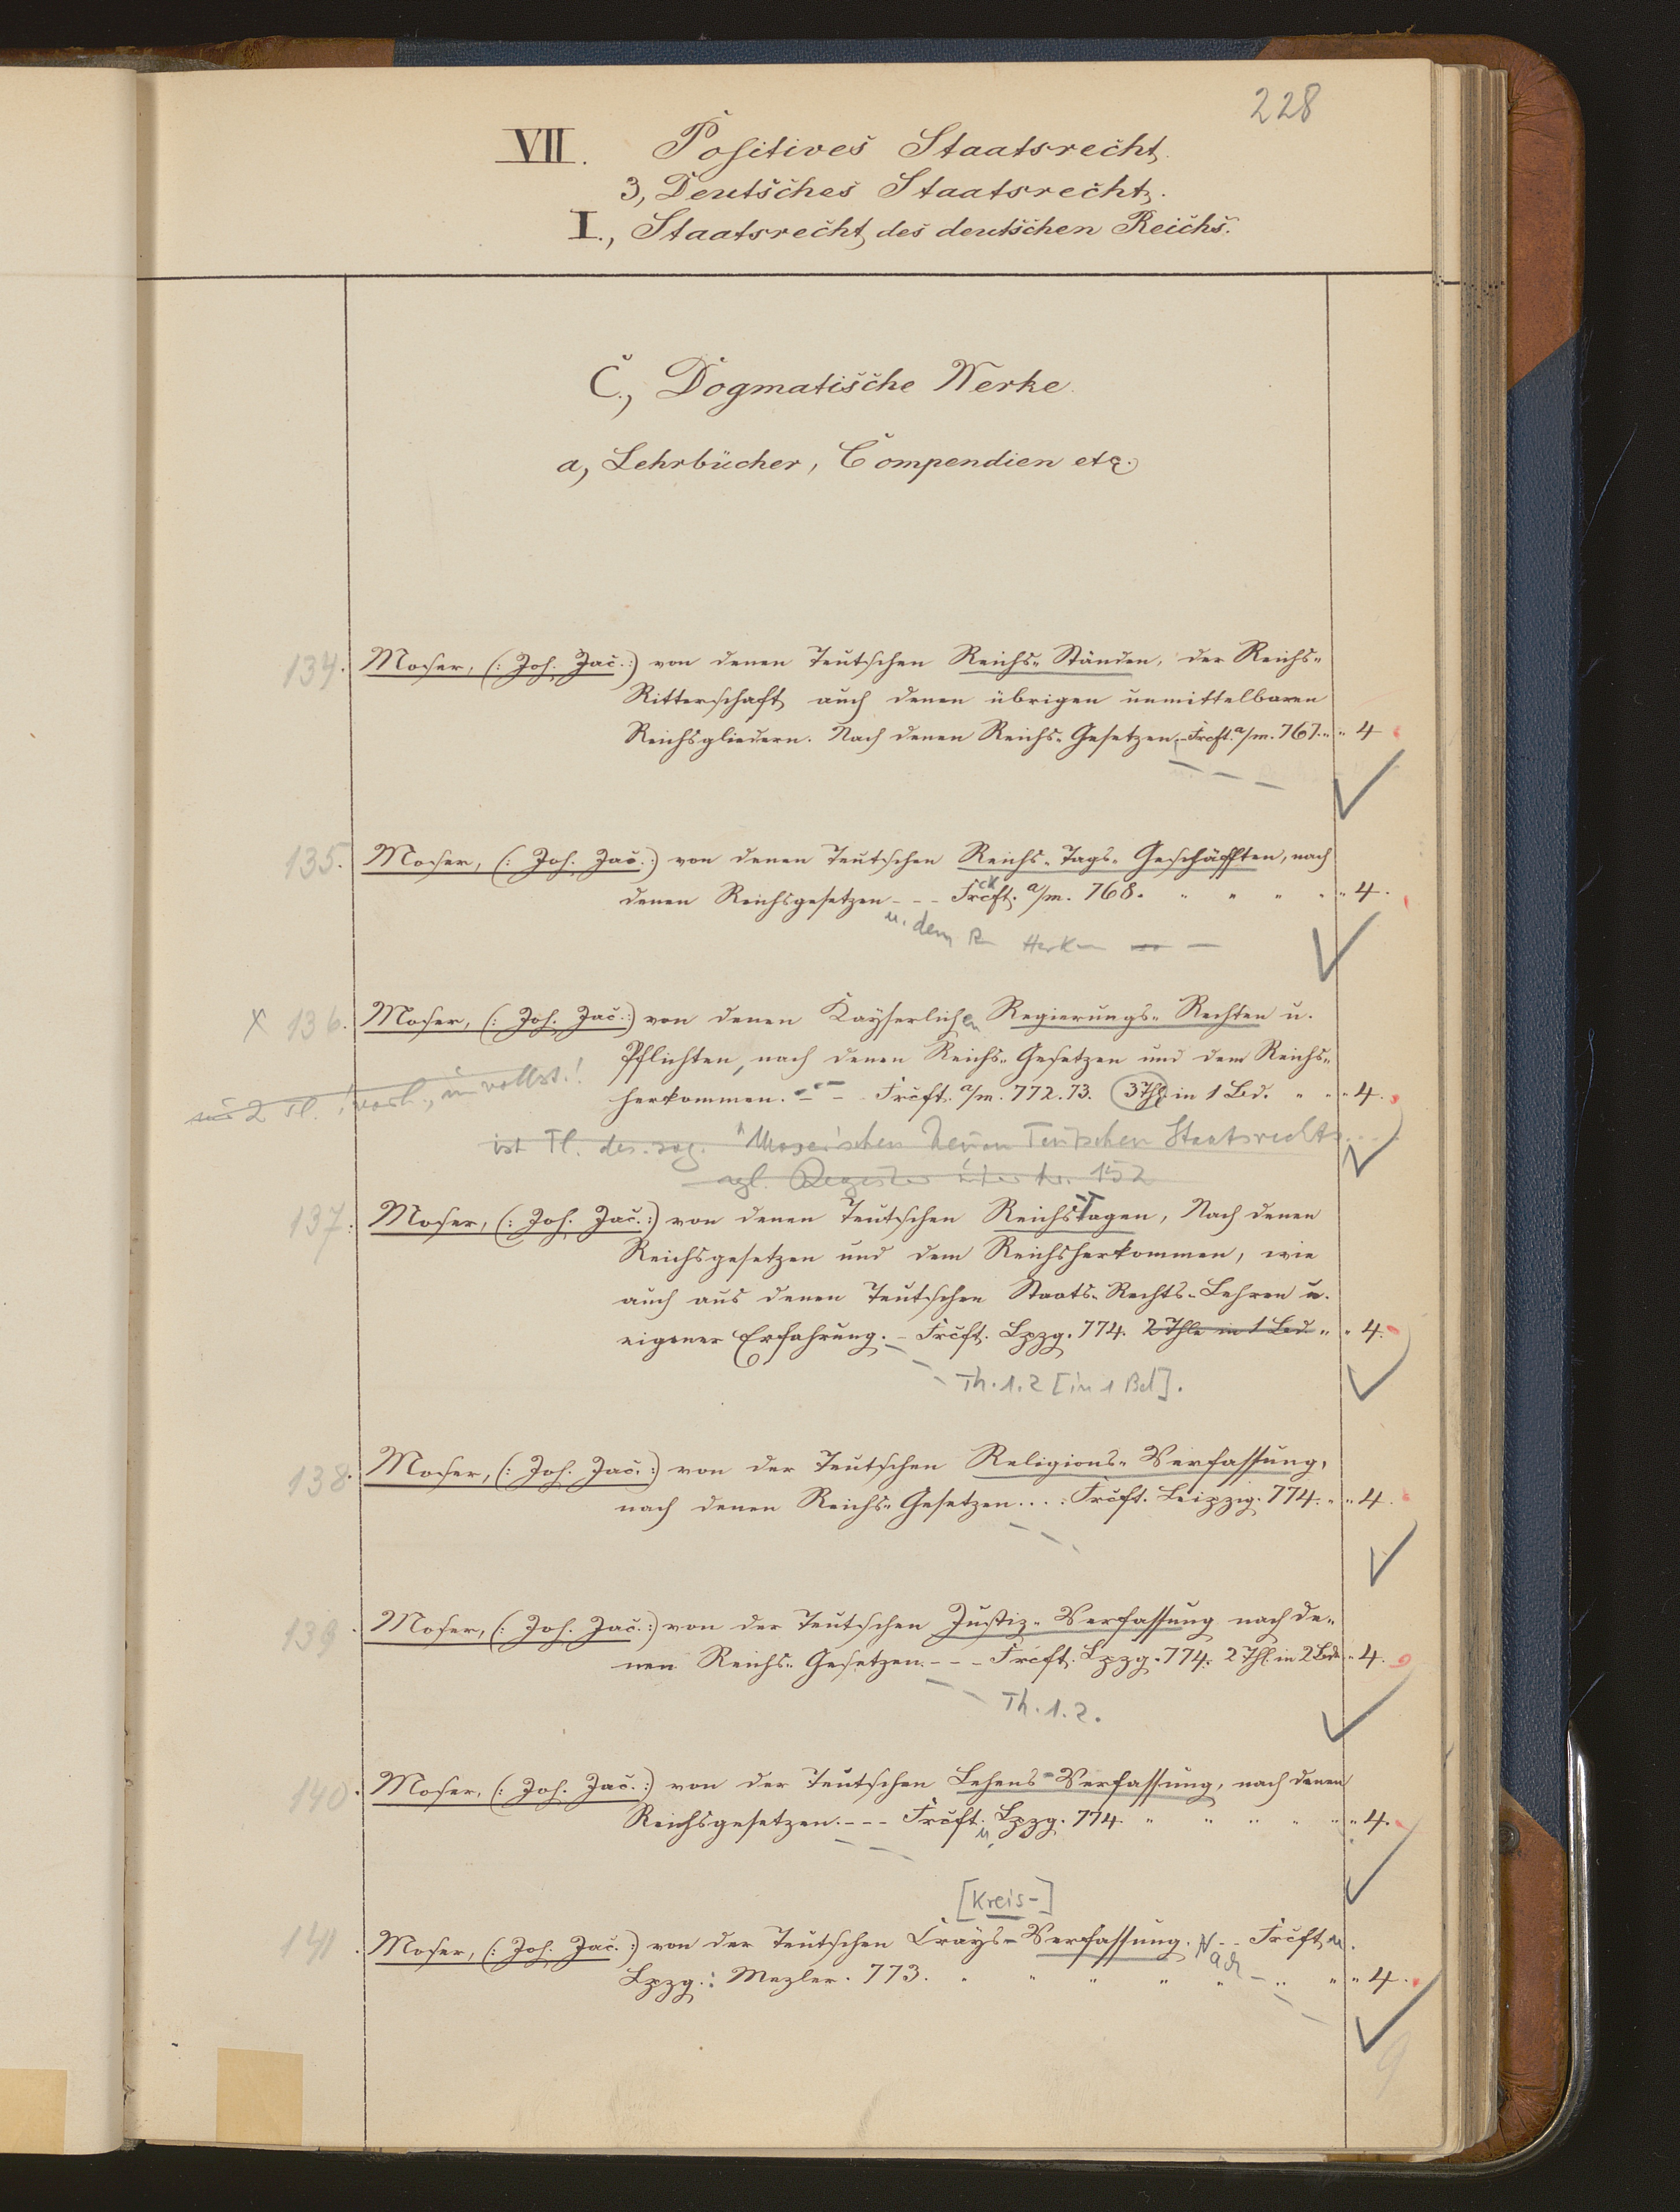 228
VII. Positives Staatsrecht.
3, Deutsches Staatsrecht.
I., Staatsrecht des deutschen Reichs.
C., Dogmatische Werke.
a, Lehrbücher, Compendien etc.
134. Moser, (: Joh. Jac. :) von denen Teutschen Reichs-Ständen, der Reichs-
Ritterschaft auch denen übrigen unmittelbaren
Reichsgliedern. Nach denen Reichs-Gesetzen, Frcft. a/m. 767. " " 4
135. Moser, (: Joh. Jac. :) von denen Teutschen Reichs-Tags-Geschäfften, nach
denen Reichsgesetzen - - - Frcft. a/m. 768. " " " " " 4.
u. dem R Herk
x 136. Moser, (: Joh. Jac. :) von denen Kayserlichen Regierungs-Rechten u.
Pflichten, nach denen Reichs-Gesetzen und dem Reichs-
nur 2 Tl. vorh., unvollst.!
herkommen. - - - Frcft. a/m. 772.73. 3 Thl in 1 Bd. " " " 4.
ist Tl. des sog. "Moser'schen neuen Teutschen Staatsrechts
vgl. Register unter Nr. 152
137. Moser, (: Joh. Jac. :) von denen Teutschen Reichs-Tagen, Nach denen
Reichsgesetzen und dem Reichsherkommen, wie
auch aus denen Teutschen Staats-Rechts-Lehren u.
eigener Erfahrung. - Frcft. Lpzg. 774. 2 Thle in 1 Bd. " " 4.
Th. 1.2 [in 1 Bd].
138. Moser, (: Joh. Jac. :) von der Teutschen Religions-Verfassung,
nach denen Reichs-Gesetzen . . . : Frcft. Leipzig. 774. " " 4.
139. Moser, (: Joh. Jac. :) von der Teutschen Justiz-Verfassung nach de-
nen Reichs-Gesetzen. - - - Frcft. Lpzg. 774. 2 Thl in 2 Bdn " 4.
Th. 1.2.
140. Moser, (: Joh. Jac. :) von der Teutschen Lehens-Verfassung, nach denen
Reichsgesetzen. - - - Frcft. u. Lpzg. 774. " " " " " " 4.
[Kreis-]
141. Moser, (: Joh. Jac. :) von der Teutschen Crays-Verfassung. Nach - - Frcft u.
Lpzg.: Mezler. 773. " " " " " " " " 4.
9